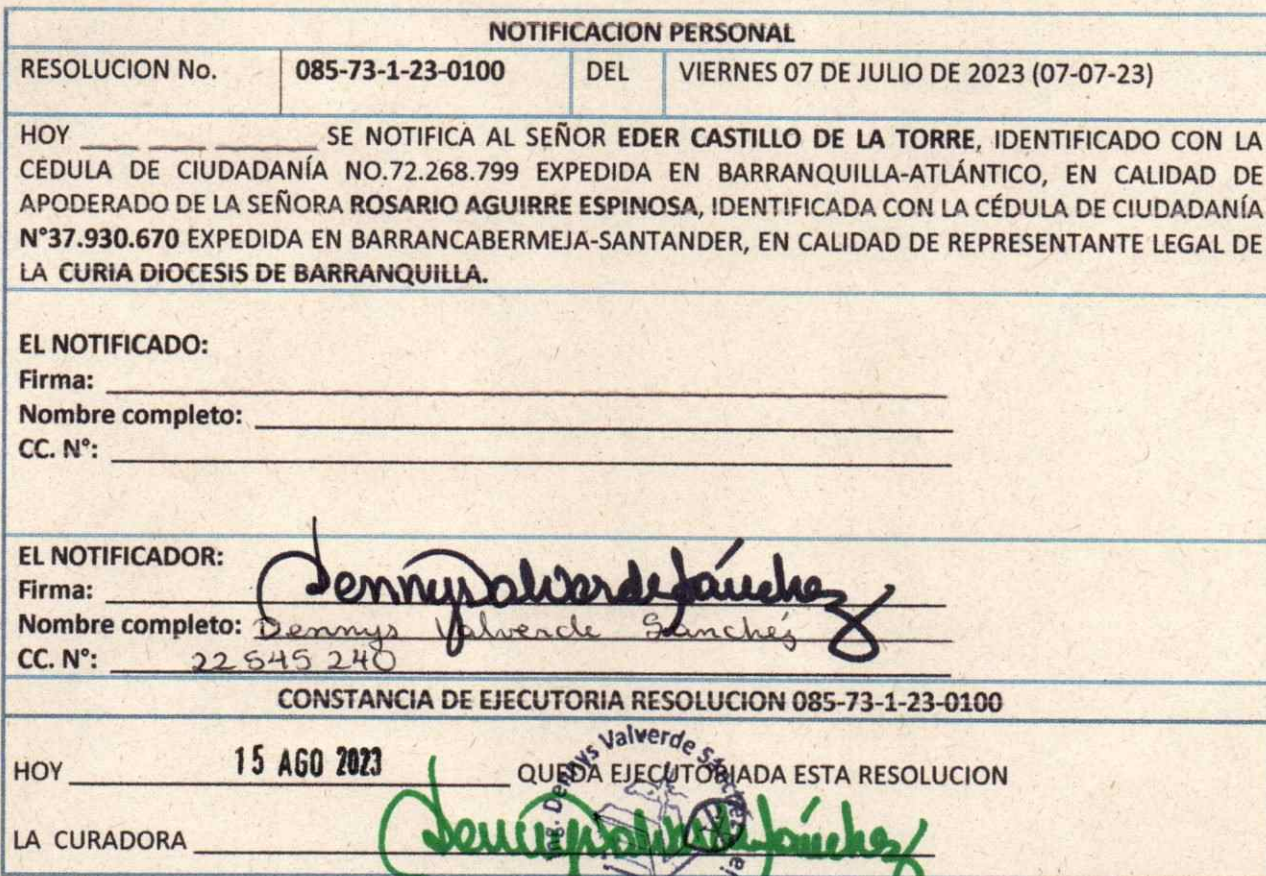 NOTIFICACION PERSONAL
RESOLUCION No. 085-73-1-23-0100 DEL VIERNES 07 DE JULIO DE 2023 (07-07-23)
HOY ____ ____ ________ SE NOTIFICA AL SEÑOR EDER CASTILLO DE LA TORRE, IDENTIFICADO CON LA
CEDULA DE CIUDADANÍA NO.72.268.799 EXPEDIDA EN BARRANQUILLA-ATLÁNTICO, EN CALIDAD DE
APODERADO DE LA SEÑORA ROSARIO AGUIRRE ESPINOSA, IDENTIFICADA CON LA CÉDULA DE CIUDADANÍA
N°37.930.670 EXPEDIDA EN BARRANCABERMEJA-SANTANDER, EN CALIDAD DE REPRESENTANTE LEGAL DE
LA CURIA DIOCESIS DE BARRANQUILLA.
EL NOTIFICADO:
Firma:
Nombre completo:
CC. N°:
EL NOTIFICADOR:
Firma: Dennys Valverde Sánchez
Nombre completo: Dennys Valverde Sánchez
CC. N°: 22545240
CONSTANCIA DE EJECUTORIA RESOLUCION 085-73-1-23-0100
HOY 15 AGO 2023 QUEDA EJECUTORIADA ESTA RESOLUCION
Ing. Dennys Valverde Sánchez
LA CURADORA Dennys Valverde Sánchez